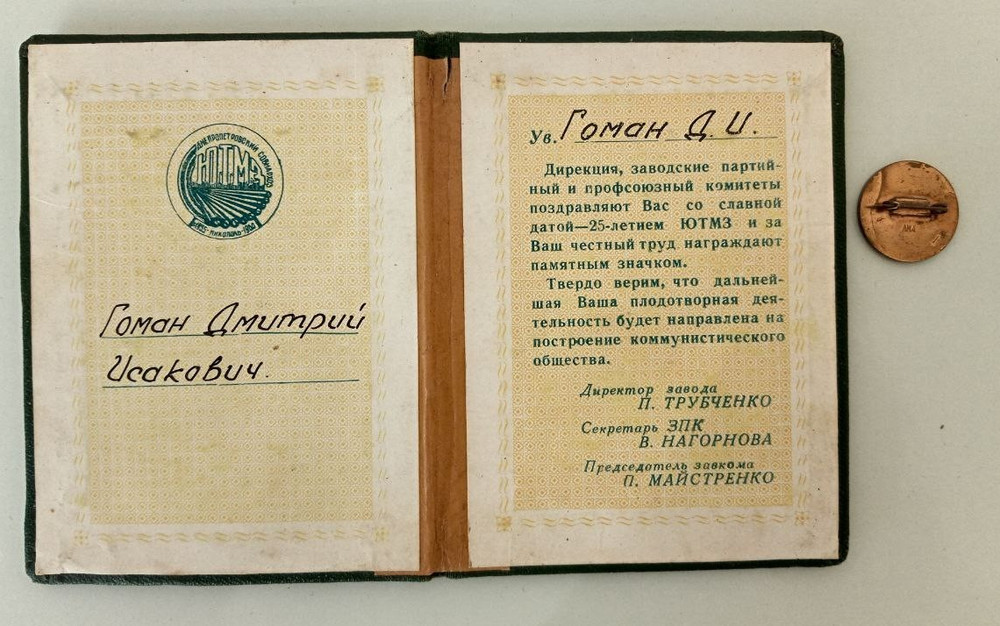 ДНЕПРОПЕТРОВСКИЙ СОВНАРХОЗ
ЮТМЗ
1935 - НИКОПОЛЬ - 1960
Гоман Дмитрий
Исакович.
Ув. Гоман Д. И.
Дирекция, заводские партий-
ный и профсоюзный комитеты
поздравляют Вас со славной
датой—25-летием ЮТМЗ и за
Ваш честный труд награждают
памятным значком.
Твердо верим, что дальней-
шая Ваша плодотворная дея-
тельность будет направлена на
построение коммунистического
общества.
Директор завода
П. ТРУБЧЕНКО
Секретарь ЗПК
В. НАГОРНОВА
Председатель завкома
П. МАЙСТРЕНКО